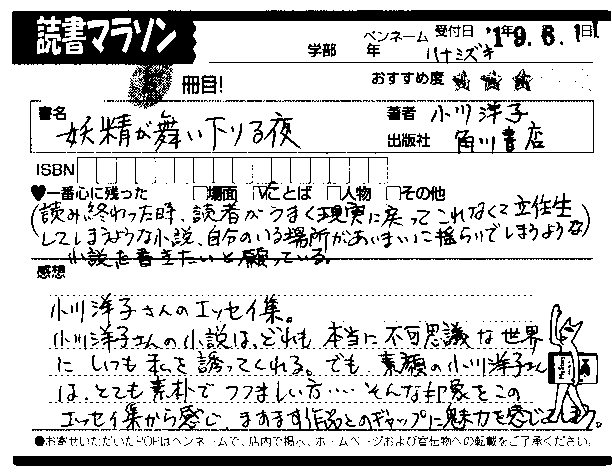 読書マラソン
学部 年 ペンネーム 受付日 '19年.6.1日
ハナミズキ
冊目! おすすめ度 ★★★
書名 妖精が舞い下りる夜
著者 小川洋子
出版社 角川書店
ISBN
♥一番心に残った □場面 ☑ことば □人物 □その他
(読み終わった時、読者がうまく現実に戻ってこれなくて立往生
してしまうような小説、自分のいる場所があいまいに揺らいでしまうような)
小説を書きたいと願っている。
感想
小川洋子さんのエッセイ集。
小川洋子さんの小説は、どれも本当に不可思議な世界
にいつも私を誘ってくれる。でも素顔の小川洋子さん
は、とても素朴でつつましい方…そんな印象をこの
エッセイ集から感じ、ますます作品とのギャップに魅力を感じてしまう。
●お寄せいただいたPOPはペンネームで、店内で掲示、ホームページおよび宣伝物への転載をご了承ください。